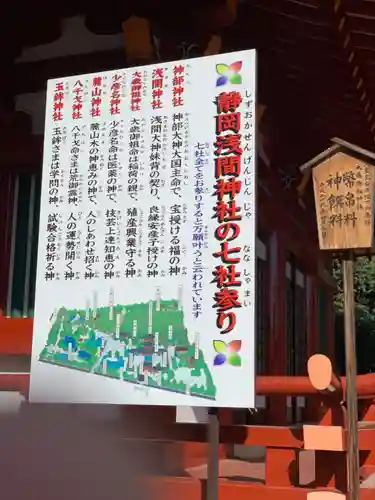 静岡浅間神社の七社参り
しずおかせんげんじんじゃ
ななしゃまいり
七社全てをお参りすると万願叶うと云われています
神部神社
神部大神大国主命で、宝授ける福の神
浅間神社
浅間大神妹背の契り、良縁安産子授けの神
大歳御祖神社
大歳御祖命は稲荷の親で、殖産興業守る神
少彦名神社
少彦名命は医薬の神で、技芸上達知恵の神
麓山神社
麓山木の神恵みの神で、人のしあわせ招く神
八千戈神社
八千戈命さまは荒御霊神、人の運勢開く神
玉鉾神社
玉鉾さまは学問の神、試験合格祈る神
常盤料
神饌料